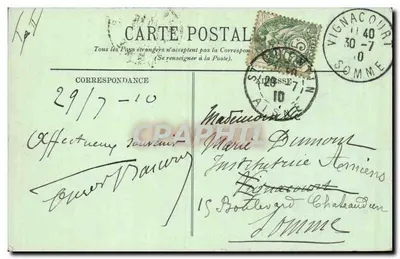 CARTE POSTALE
Tous les Pays étrangers n'acceptent pas la Correspondance
(Se renseigner à la Poste).
VIGNACOURT
11 40
30-7
10
SOMME
CORRESPONDANCE
ADRESSE
29-7
10
AISNE
29/7-10
Affectueux souvenir
Mademoiselle
Marie Dumont
Institutrice Amiens
Vignacourt
15 Boulevard Chateaudun
Somme